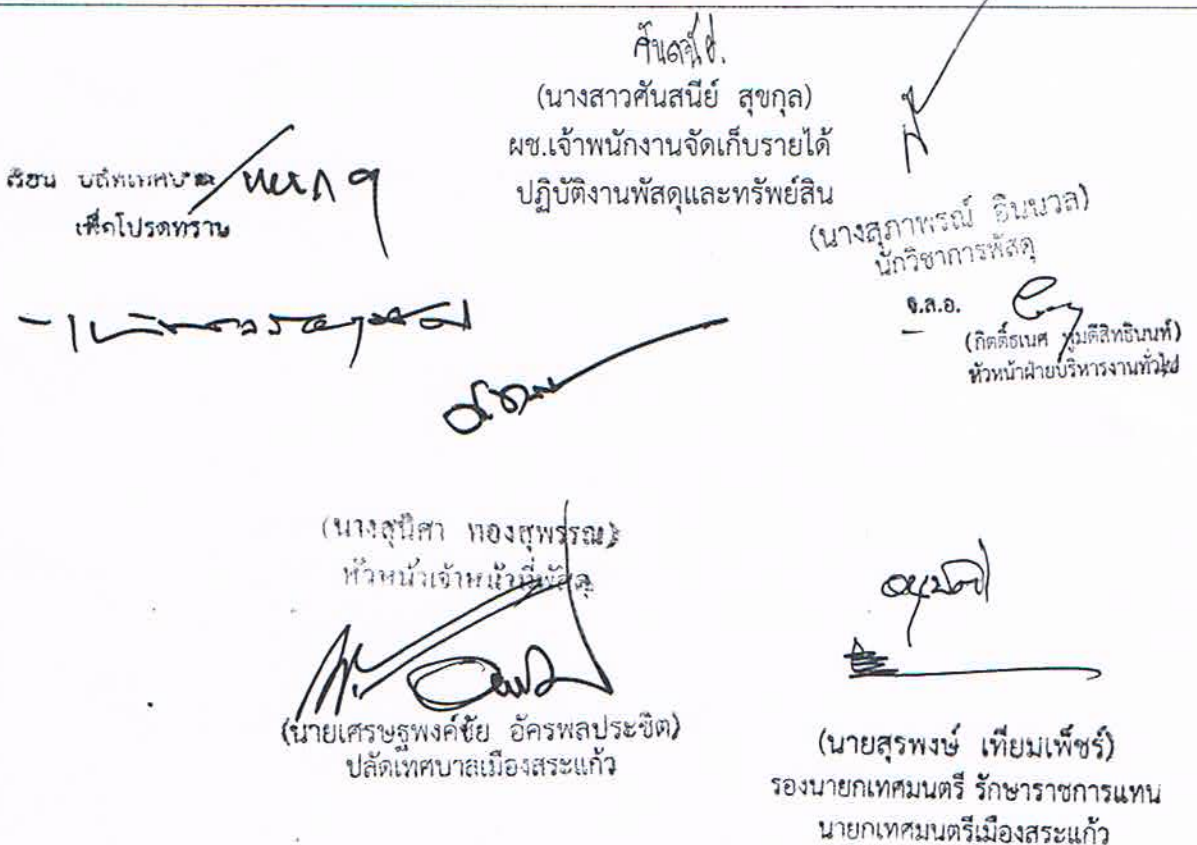 (นางสาวศันสนีย์ สุขกุล)
ผช.เจ้าพนักงานจัดเก็บรายได้
ปฏิบัติงานพัสดุและทรัพย์สิน
เรียน
เพื่อโปรดทราบ
(นางสุภาพรณ์ อินนวล)
นักวิชาการพัสดุ
จ.ส.อ.
(กิตติ์ธเนศ
หัวหน้าฝ่ายบริหารงานทั่วไป
(นางสุนิศา ทองสุพรรณ)
หัวหน้าเจ้าหน้าที่พัสดุ
(นายเศรษฐพงค์ชัย อัครพลประชิต)
ปลัดเทศบาลเมืองสระแก้ว
อนุมัติ
(นายสุรพงษ์ เทียมเพ็ชร์)
รองนายกเทศมนตรี รักษาราชการแทน
นายกเทศมนตรีเมืองสระแก้ว